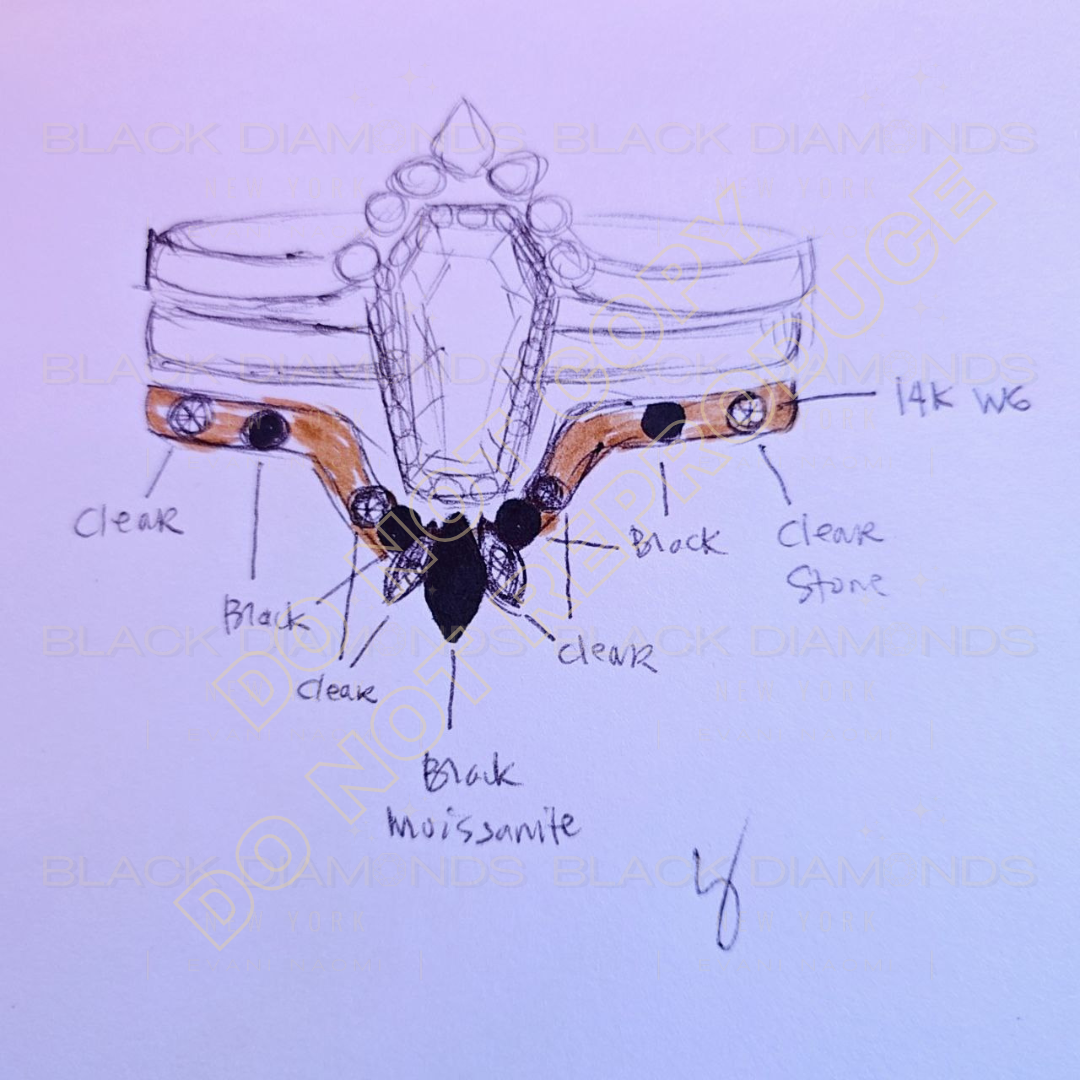 BLACK DIAMONDS BLACK DIAMONDS
NEW YORK NEW YORK
DO NOT COPY
DO NOT REPRODUCE
BLACK DIAMONDS BLACK DIAMONDS
14K WG
Clear
Black
Clear
Stone
Black
BLACK DIAMONDS BLACK DIAMONDS
Clear
Clear
NEW YORK
Black
Moissanite
BLACK DIAMONDS BLACK DIAMONDS
NEW YORK NEW YORK